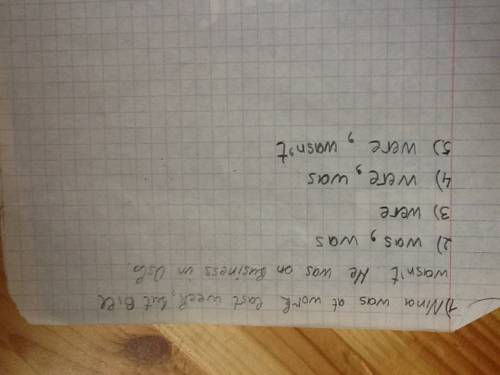 1) Nina was at work last week, but Bill
wasn't. He was on business in Oslo.
2) was, was
3) were
4) were, was
5) were, wasn't